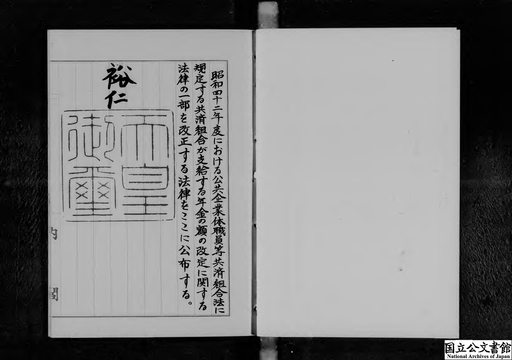 昭和四十二年度における公共企業体職員等共済組合法に
規定する共済組合が支給する年金の額の改定に関する
法律の一部を改正する法律をここに公布する。
裕仁
天皇
御璽
内
閣
国立公文書館
National Archives of Japan